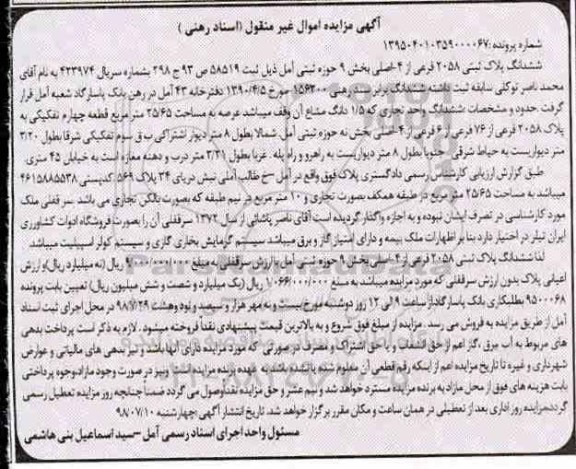 آگهی مزایده اموال غیر منقول (اسناد رهنی)
شماره پرونده: ۱۳۹۵۰۴۰۱۰۳۵۹۰۰۰۰۶۷
ششدانگ پلاک ثبتی ۲۰۵۸ فرعی از ۴-اصلی بخش ۹ حوزه ثبتی آمل ذیل ثبت ۵۸۵۱۹ ص ۹۳ ج ۲۹۸ بشماره سریال ۴۳۳۹۷۴ به نام آقای
محمد ناصر توکلی سابقه ثبت داشته ششدانگ برابر سند رهنی ۱۵۶۲۰۰ مورخ ۱۳۹۰/۴/۵ دفترخانه ۴۳ آمل در رهن بانک پاسارگاد شعبه آمل قرار
گرفت حدود و مشخصات ششدانگ واحد تجاری که ۱/۵ دانگ مشاع آن وقف میباشد عرصه به مساحت ۲۵/۶۵ متر مربع قطعه چهارم تفکیکی به
پلاک ۲۰۵۸ فرعی از ۷۶ فرعی از ۶ فرعی از ۴ اصلی بخش نه حوزه ثبتی آمل. شمالا بطول ۸ متر دیوار اشتراکی ب ق سوم تفکیکی شرقا بطول ۳/۲۰
متر دیواریست به حیاط شرقی جنوبا بطول ۸ متر دیواریست به راهرو و راه پله. غربا بطول ۳/۲۱ متر درب و دهنه مغازه است به خیابان ۴۵ متری
طبق گزارش ارزیابی کارشناس رسمی دادگستری پلاک فوق واقع در آمل -خ طالب آملی نبش دریای ۳۴ پلاک ۵۶۹ کدپستی ۴۶۱۵۸۸۵۵۳۸
میباشد به مساحت ۲۵/۶۵ متر مربع در طبقه همکف بصورت تجاری و ۱۰ متر مربع در نیم طبقه که بصورت بالکن تجاری می باشد سر قفلی ملک
مورد کارشناسی در تصرف ایشان نبوده و به اجاره واگذار گردیده است آقای ناصر پاشائی از سال ۱۳۷۲ سرقفلی آن را بصورت فروشگاه ادوات کشاورزی
ایران تیلر در اختیار دارد بنا بر اظهارات ملک بیمه و دارای امتیاز گاز و برق میباشد سیستم گرمایش بخاری گازی و سیستم کولر اسپیلیت میباشد.
لذا ششدانگ پلاک ثبتی ۲۰۵۸ فرعی از ۴-اصلی بخش ۹ حوزه ثبتی آمل با ارزش سرقفلی به مبلغ ۹/۰۰۰/۰۰۰/۰۰۰ ریال (نه میلیارد ریال) و ارزش
اعیانی پلاک بدون ارزش سرقفلی که مورد مزایده میباشد به مبلغ ۱/۰۶۶/۰۰۰/۰۰۰ ریال (یک میلیارد و شصت و شش میلیون ریال) تعیین بابت پرونده
۹۵۰۰۰۶۸ بطلبکاری بانک پاسارگاد از ساعت ۹ الی ۱۲ روز دوشنبه مورخ بیست و نه مهر هزار و سیصد و نود و هشت ۹۸/۷/۲۹ در محل اجرای ثبت اسناد
آمل از طریق مزایده به فروش می رسد. مزایده از مبلغ فوق شروع و به بالاترین قیمت پیشنهادی نقدا فروخته میشود. لازم به ذکر است پرداخت بدهی
های مربوط به آب برق، گاز اعم از حق انشعاب و یا حق اشتراک و مصرف در صورتی که مورد مزایده دارای آنها باشد و نیز بدهی های مالیاتی و عوارض
شهرداری و غیره تا تاریخ مزایده اعم از اینکه رقم قطعی آن معلوم شده یا نشده باشد به عهده برنده مزایده است و نیز در صورت وجود مازاد وجوه پرداختی
بابت هزینه های فوق از محل مازاد به برنده مزایده مسترد خواهد شد و نیم عشر و حق مزایده نقدا وصول می گردد ضمنا چنانچه روز مزایده تعطیل رسمی
گردد مزایده روز اداری بعد از تعطیلی در همان ساعت و مکان مقرر برگزار خواهد شد. تاریخ انتشار آگهی: چهارشنبه ۹۸/۰۷/۱۰
مسئول واحد اجرای اسناد رسمی آمل -سید اسماعیل بنی هاشمی